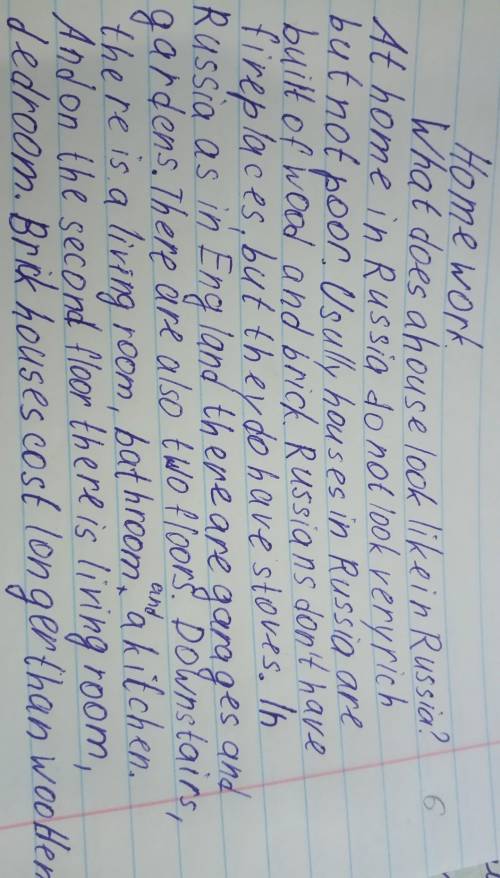 Home work
What does a house look like in Russia?
At home in Russia do not look very rich
but not poor. Usully houses in Russia are
built of wood and brick. Russians don't have
fireplaces, but they do have stoves. In
Russia as in England there are garages and
gardens. There are also two floors. Downstairs,
there is a living room, bathroom, and a kitchen.
And on the second floor there is living room,
dedroom. Brick houses cost longer than wooHen
6